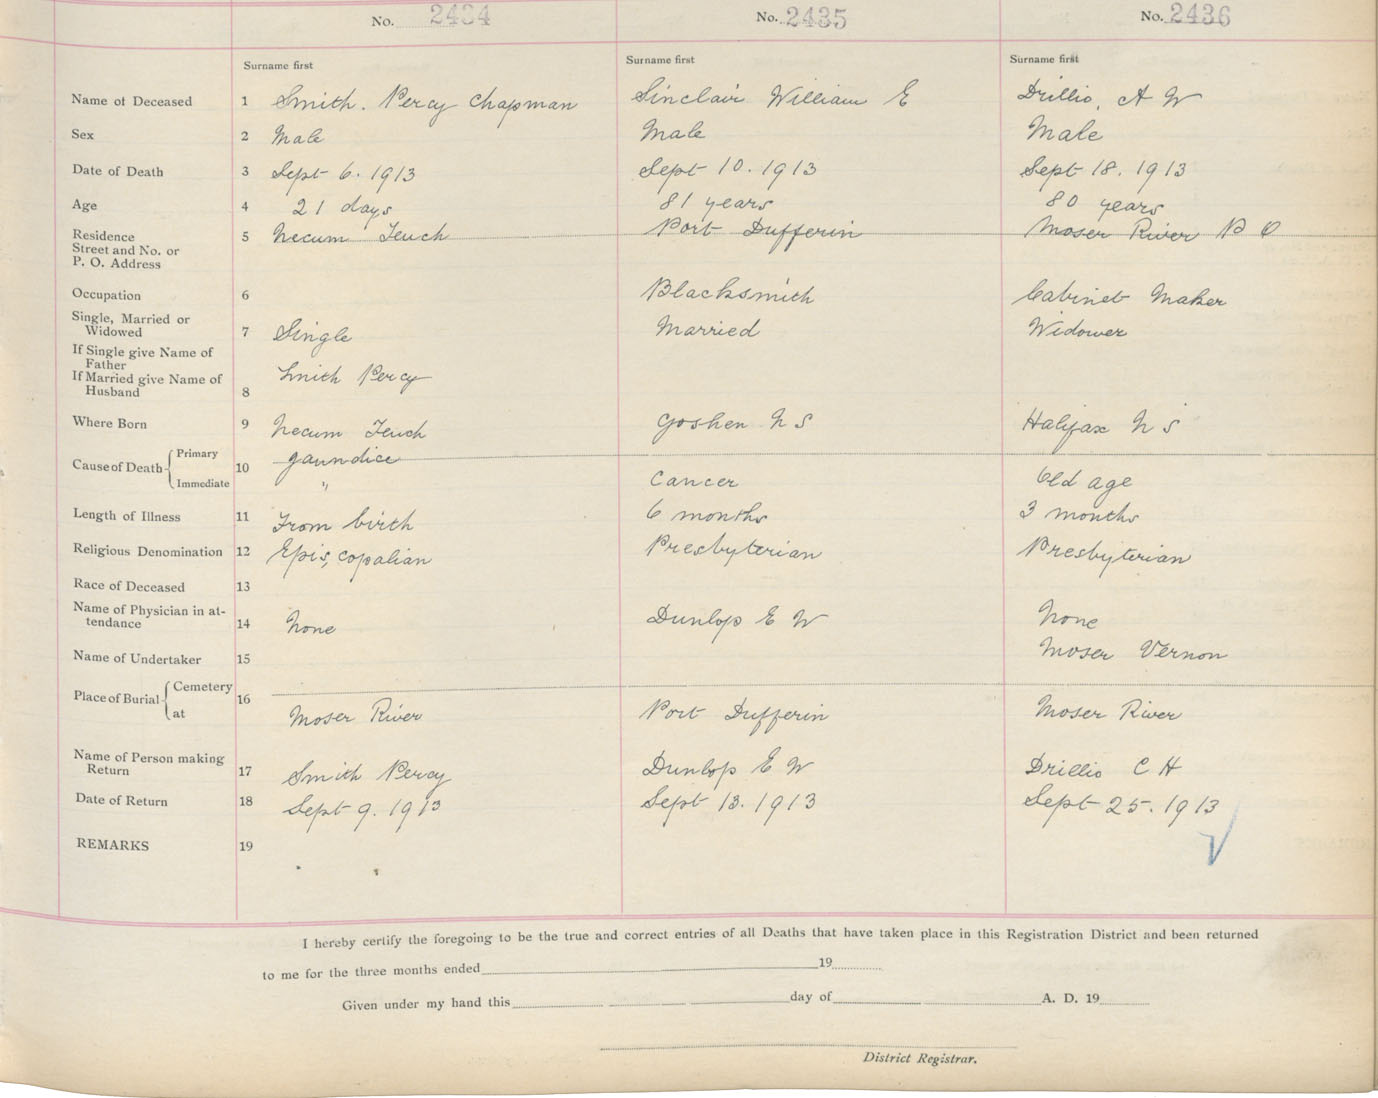 No. 2434 No. 2435 No. 2436
Surname first Surname first Surname first
Name of Deceased 1 Smith. Percy Chapman Sinclair William E Drillio, A W
Sex 2 Male Male Male
Date of Death 3 Sept 6. 1913 Sept 10. 1913 Sept 18. 1913
Age 4 21 days 81 years 80 years
Residence 5 Necum Teuch Port Dufferin Moser River P O
Street and No. or
P. O. Address
Occupation 6 Blacksmith Cabinet Maker
Single, Married or
Widowed 7 Single Married Widower
If Single give Name of
Father
If Married give Name of Smith Percy
Husband 8
Where Born 9 Necum Teuch Goshen N S Halifax N S
Cause of Death Primary 10 Jaundice
Immediate " Cancer Old age
Length of Illness 11 From birth 6 months 3 months
Religious Denomination 12 Epis,copalian Presbyterian Presbyterian
Race of Deceased 13
Name of Physician in at-
tendance 14 None Dunlop E W None
Name of Undertaker 15 Moser Vernon
Place of Burial Cemetery 16
at Moser River Port Dufferin Moser River
Name of Person making
Return 17 Smith Percy Dunlop E W Drillio C H
Date of Return 18 Sept 9. 1913 Sept 13. 1913 Sept 25. 1913
REMARKS 19
I hereby certify the foregoing to be the true and correct entries of all Deaths that have taken place in this Registration District and been returned
to me for the three months ended 19
Given under my hand this day of A. D. 19
District Registrar.